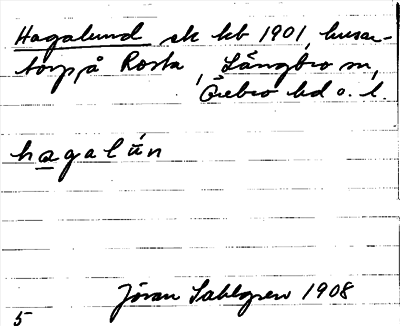 Hagalund sk kb 1901, husar-
torp på Rosta, Längbro sn,
Örebro hd o. l.
hagalún
Jöran Sahlgren 1908
5